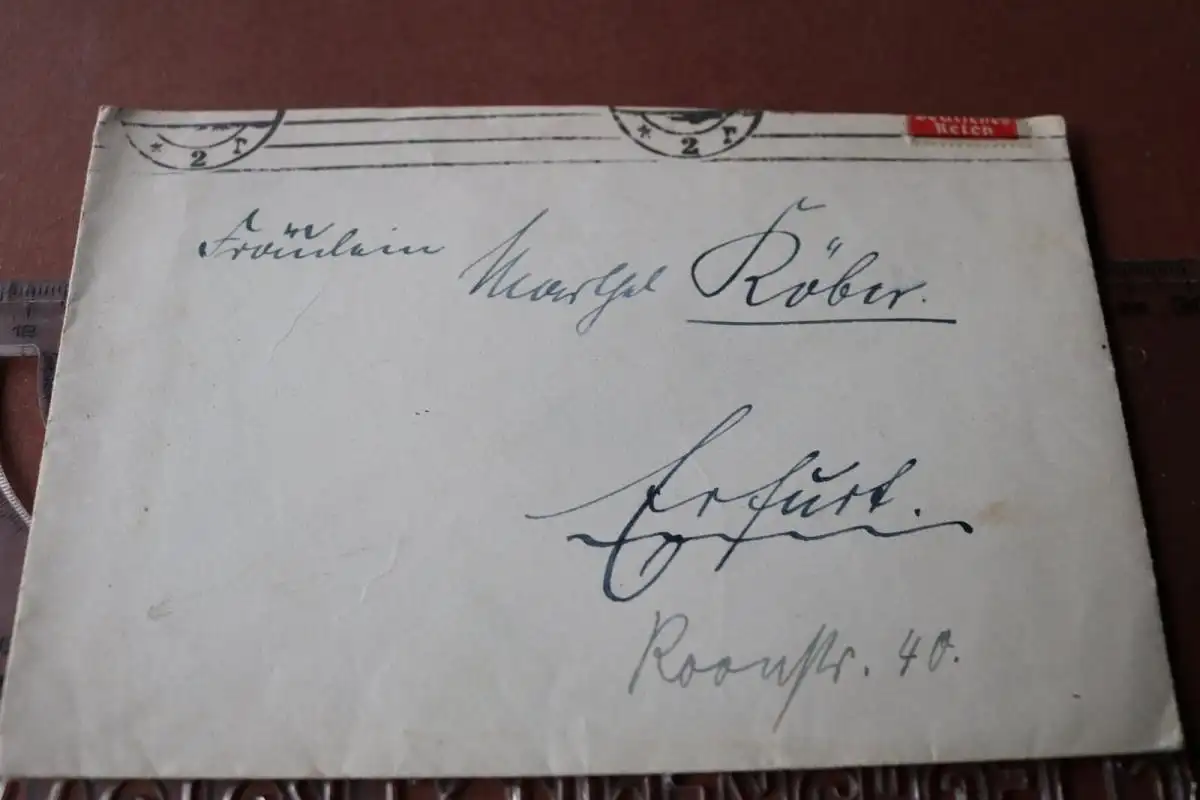 * 2 r * 2 r
Deutsches
Reich
Fräulein Marthel Röber.
Erfurt.
Roonstr. 40.
18